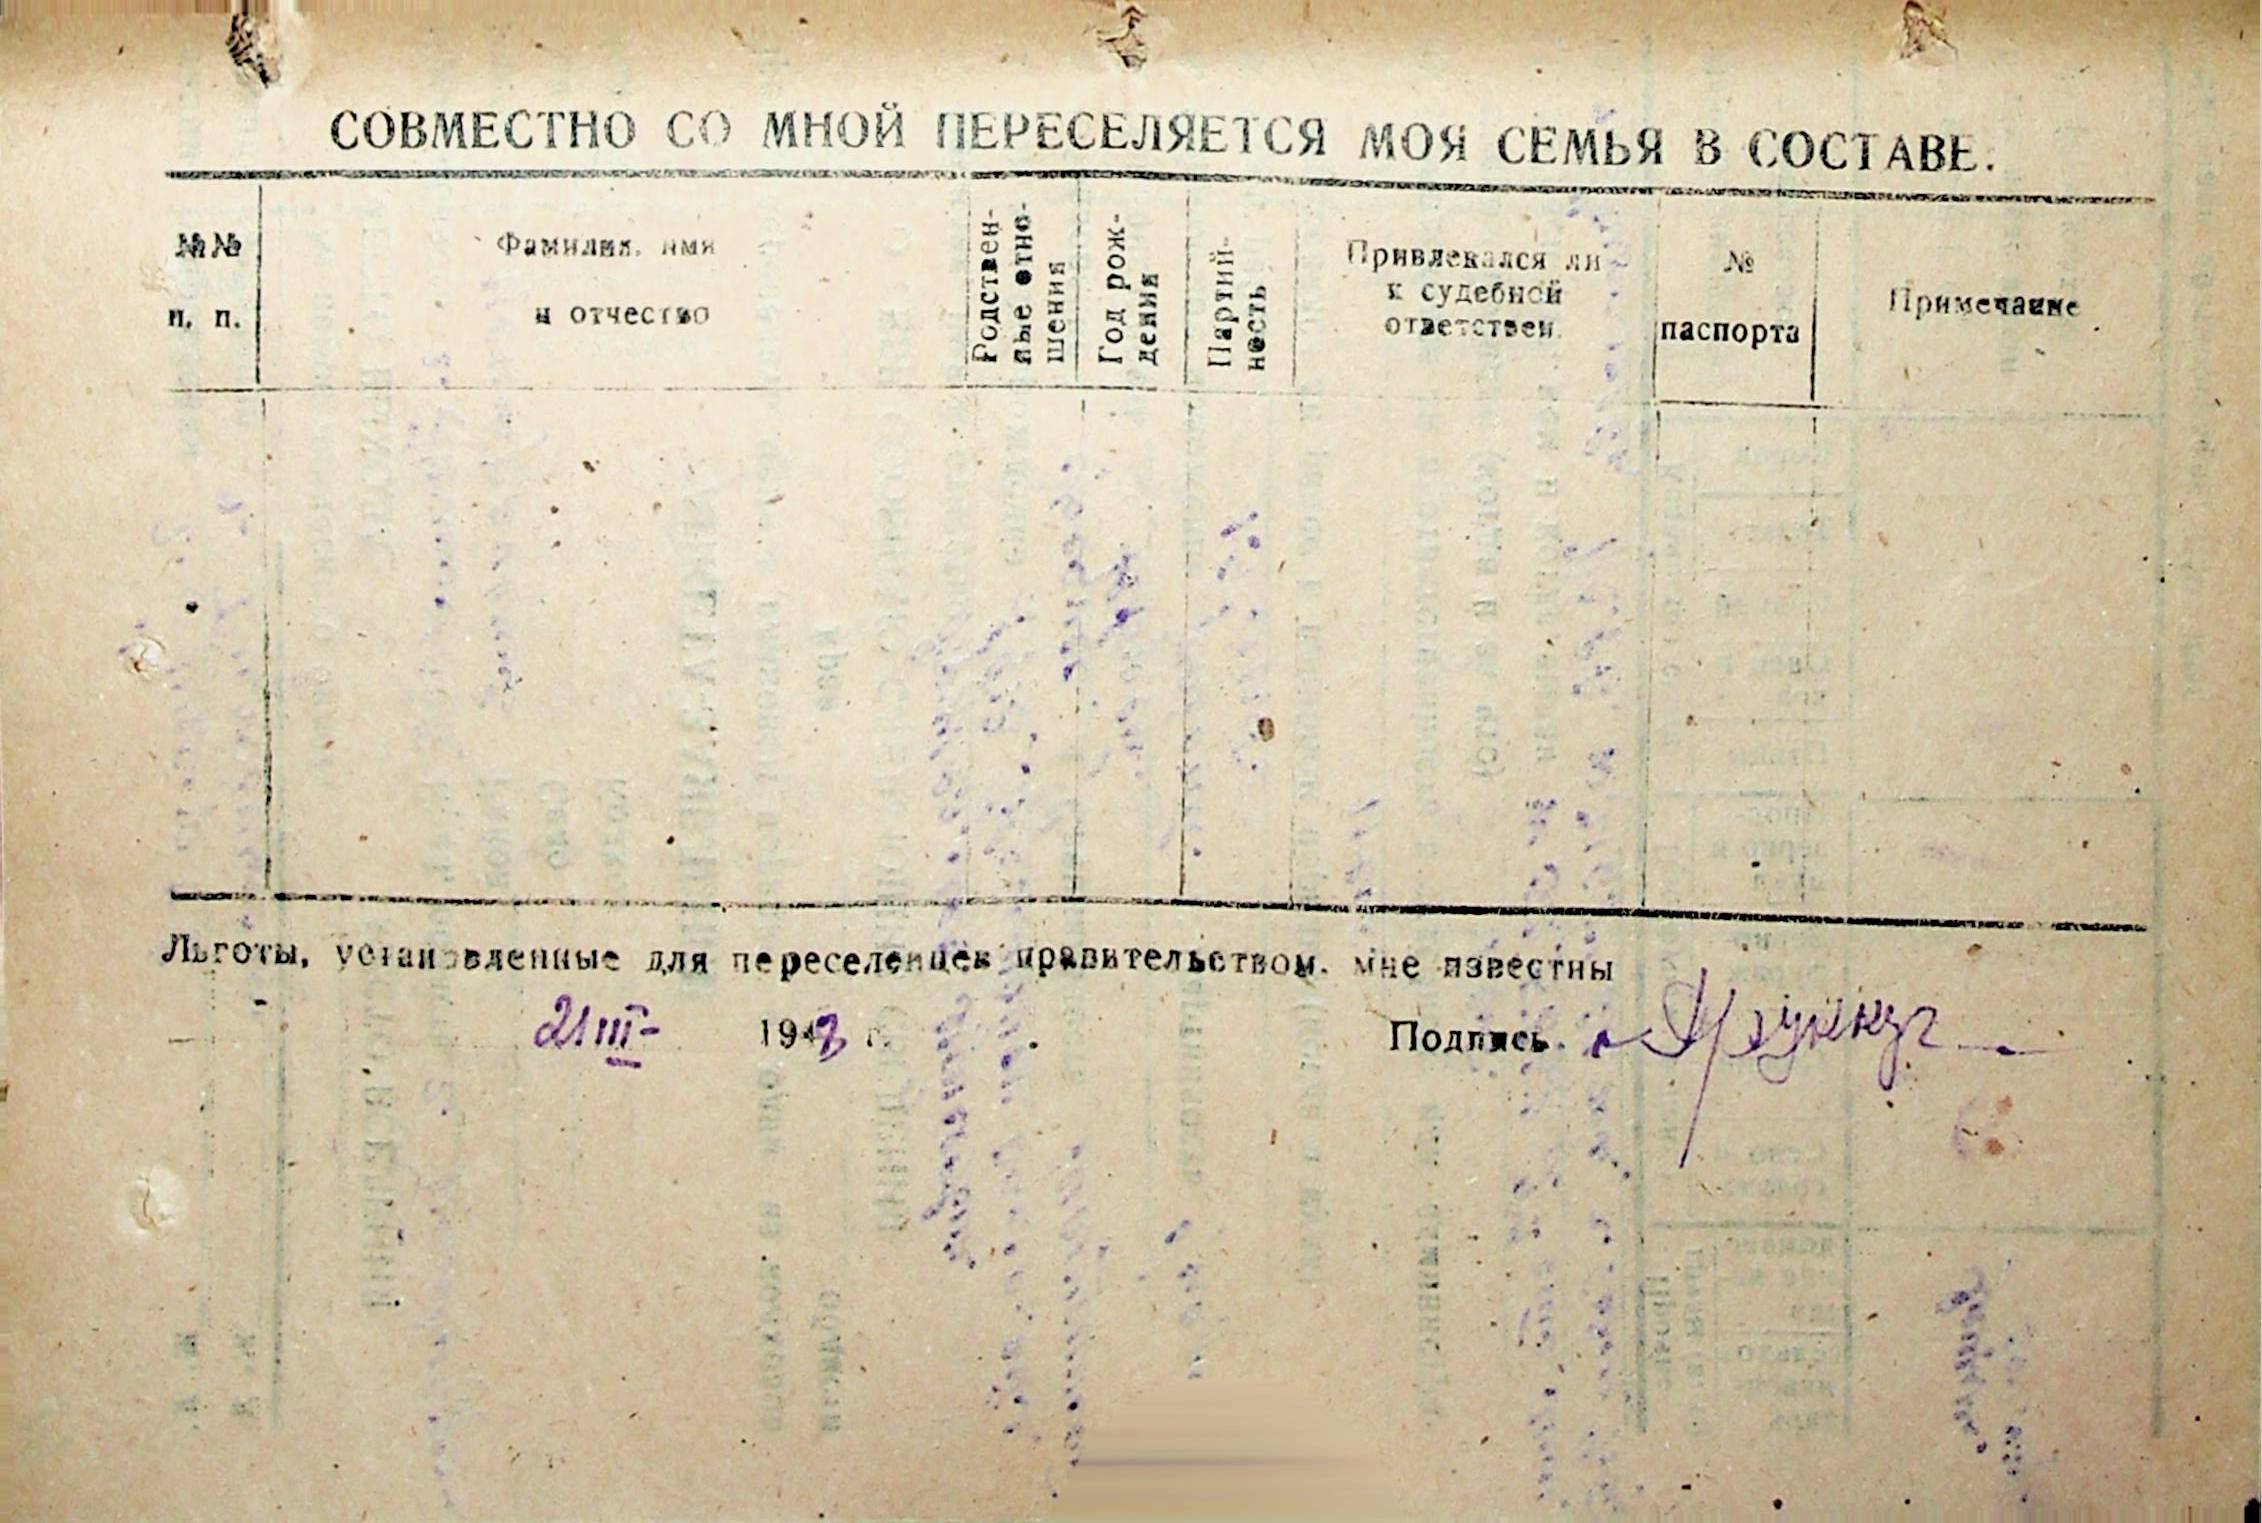 СОВМЕСТНО СО МНОЙ ПЕРЕСЕЛЯЕТСЯ МОЯ СЕМЬЯ В СОСТАВЕ.
№№
п. п.
Фамилия, имя
и отчество
Родствен-
ные отно-
шения
Год рож-
дения
Партий-
ность
Привлекался ли
к судебной
ответствен.
№
паспорта
Примечание
Льготы, установленные для переселенцев правительством, мне известны
21 III- 1948 г.
Подпись